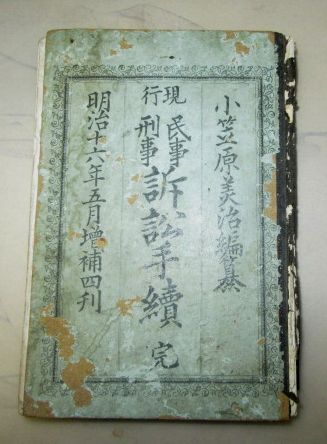 小笠原美治編纂
現行
民事
刑事
訴訟手續 完
明治十六年五月增補四刊